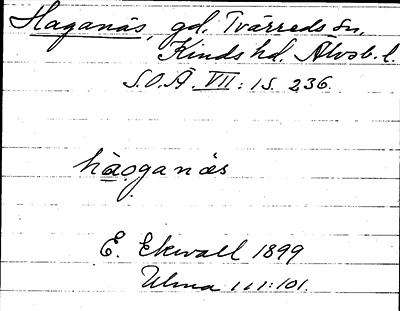 Haganäs, gd. Tvärreds sn,
Kinds hd. Älvsb. l.
S.O.Ä. VII: 1 S. 236.
hàoganäs
E. Ekwall 1899
Ulma 111:101.